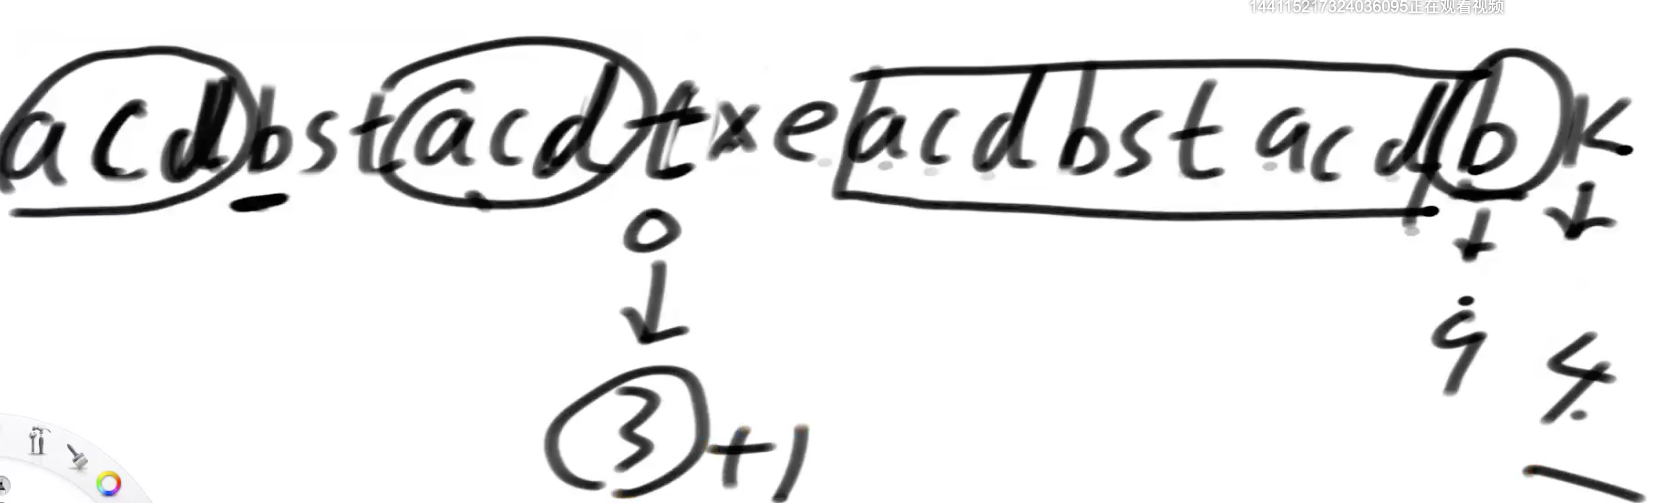 144115217324036095正在观看视频
acdbstacdtxeacdbstacdbk
0
9 4
3+1